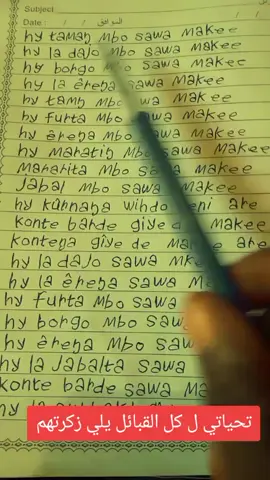 Subject
Date : / / الموافق / /
hy tamaŋ mbo sawa makee
hy la dajo mbo sawa makee
hy borgo mbo sawa makee
hy la êreŋa sawa makee
hy tamŋ mbo wa makee
hy furta mbo sawa makee
hy êreŋa mbo sawa makee
hy maratiŋ mbo sawa makee
mararita mbo sawa makee
jabal mbo sawa makee
hy kurnaŋa wihdo are
konte barde giye de makee
konteŋa giye de are
hy la dajo sawa mkee
hy la êreŋa sawa
hy furta mbo sawa
hy borgo mbo sawa
hy êreŋa mbo sawa
hy la jabalta sawa
konte barde sawa
hy la
تحياتي ل كل القبائل يلي زكرتهم